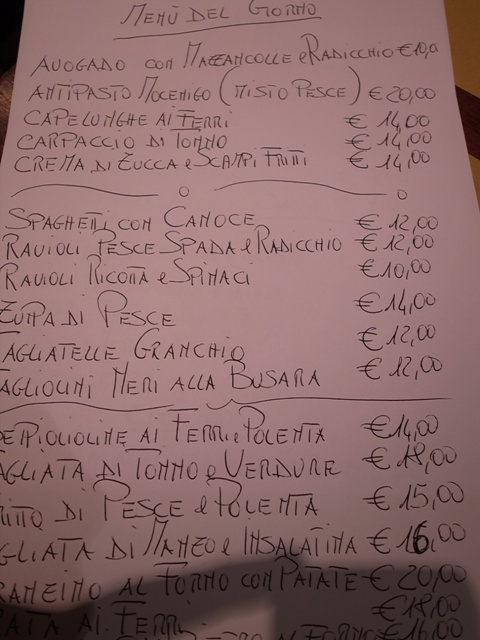 MENÙ DEL GIORNO
AVOGADO CON MAZZANCOLLE e RADICCHIO €10,0
ANTIPASTO MOCENIGO (MISTO PESCE) €20,00
CAPELUNGHE AI FERRI € 14,00
CARPACCIO DI TONNO € 14,00
CREMA DI ZUCCA e SCAMPI FRITTI € 14,00
SPAGHETTI CON CANOCE € 12,00
RAVIOLI PESCE SPADA e RADICCHIO € 12,00
RAVIOLI RICOTTA e SPINACI €10,00
ZUPPA DI PESCE €14,00
TAGLIATELLE GRANCHIO €12,00
TAGLIOLINI NERI ALLA BUSARA € 12,00
SEPPIOLINE AI FERRI e POLENTA €14,00
TAGLIATA DI TONNO e VERDURE €18,00
FRITTO DI PESCE e POLENTA €15,00
TAGLIATA DI MANZO e INSALATINA €16,00
BRANZINO AL FORNO CON PATATE €20,00
AI FERRI €18,00
AL FORNO €16,00